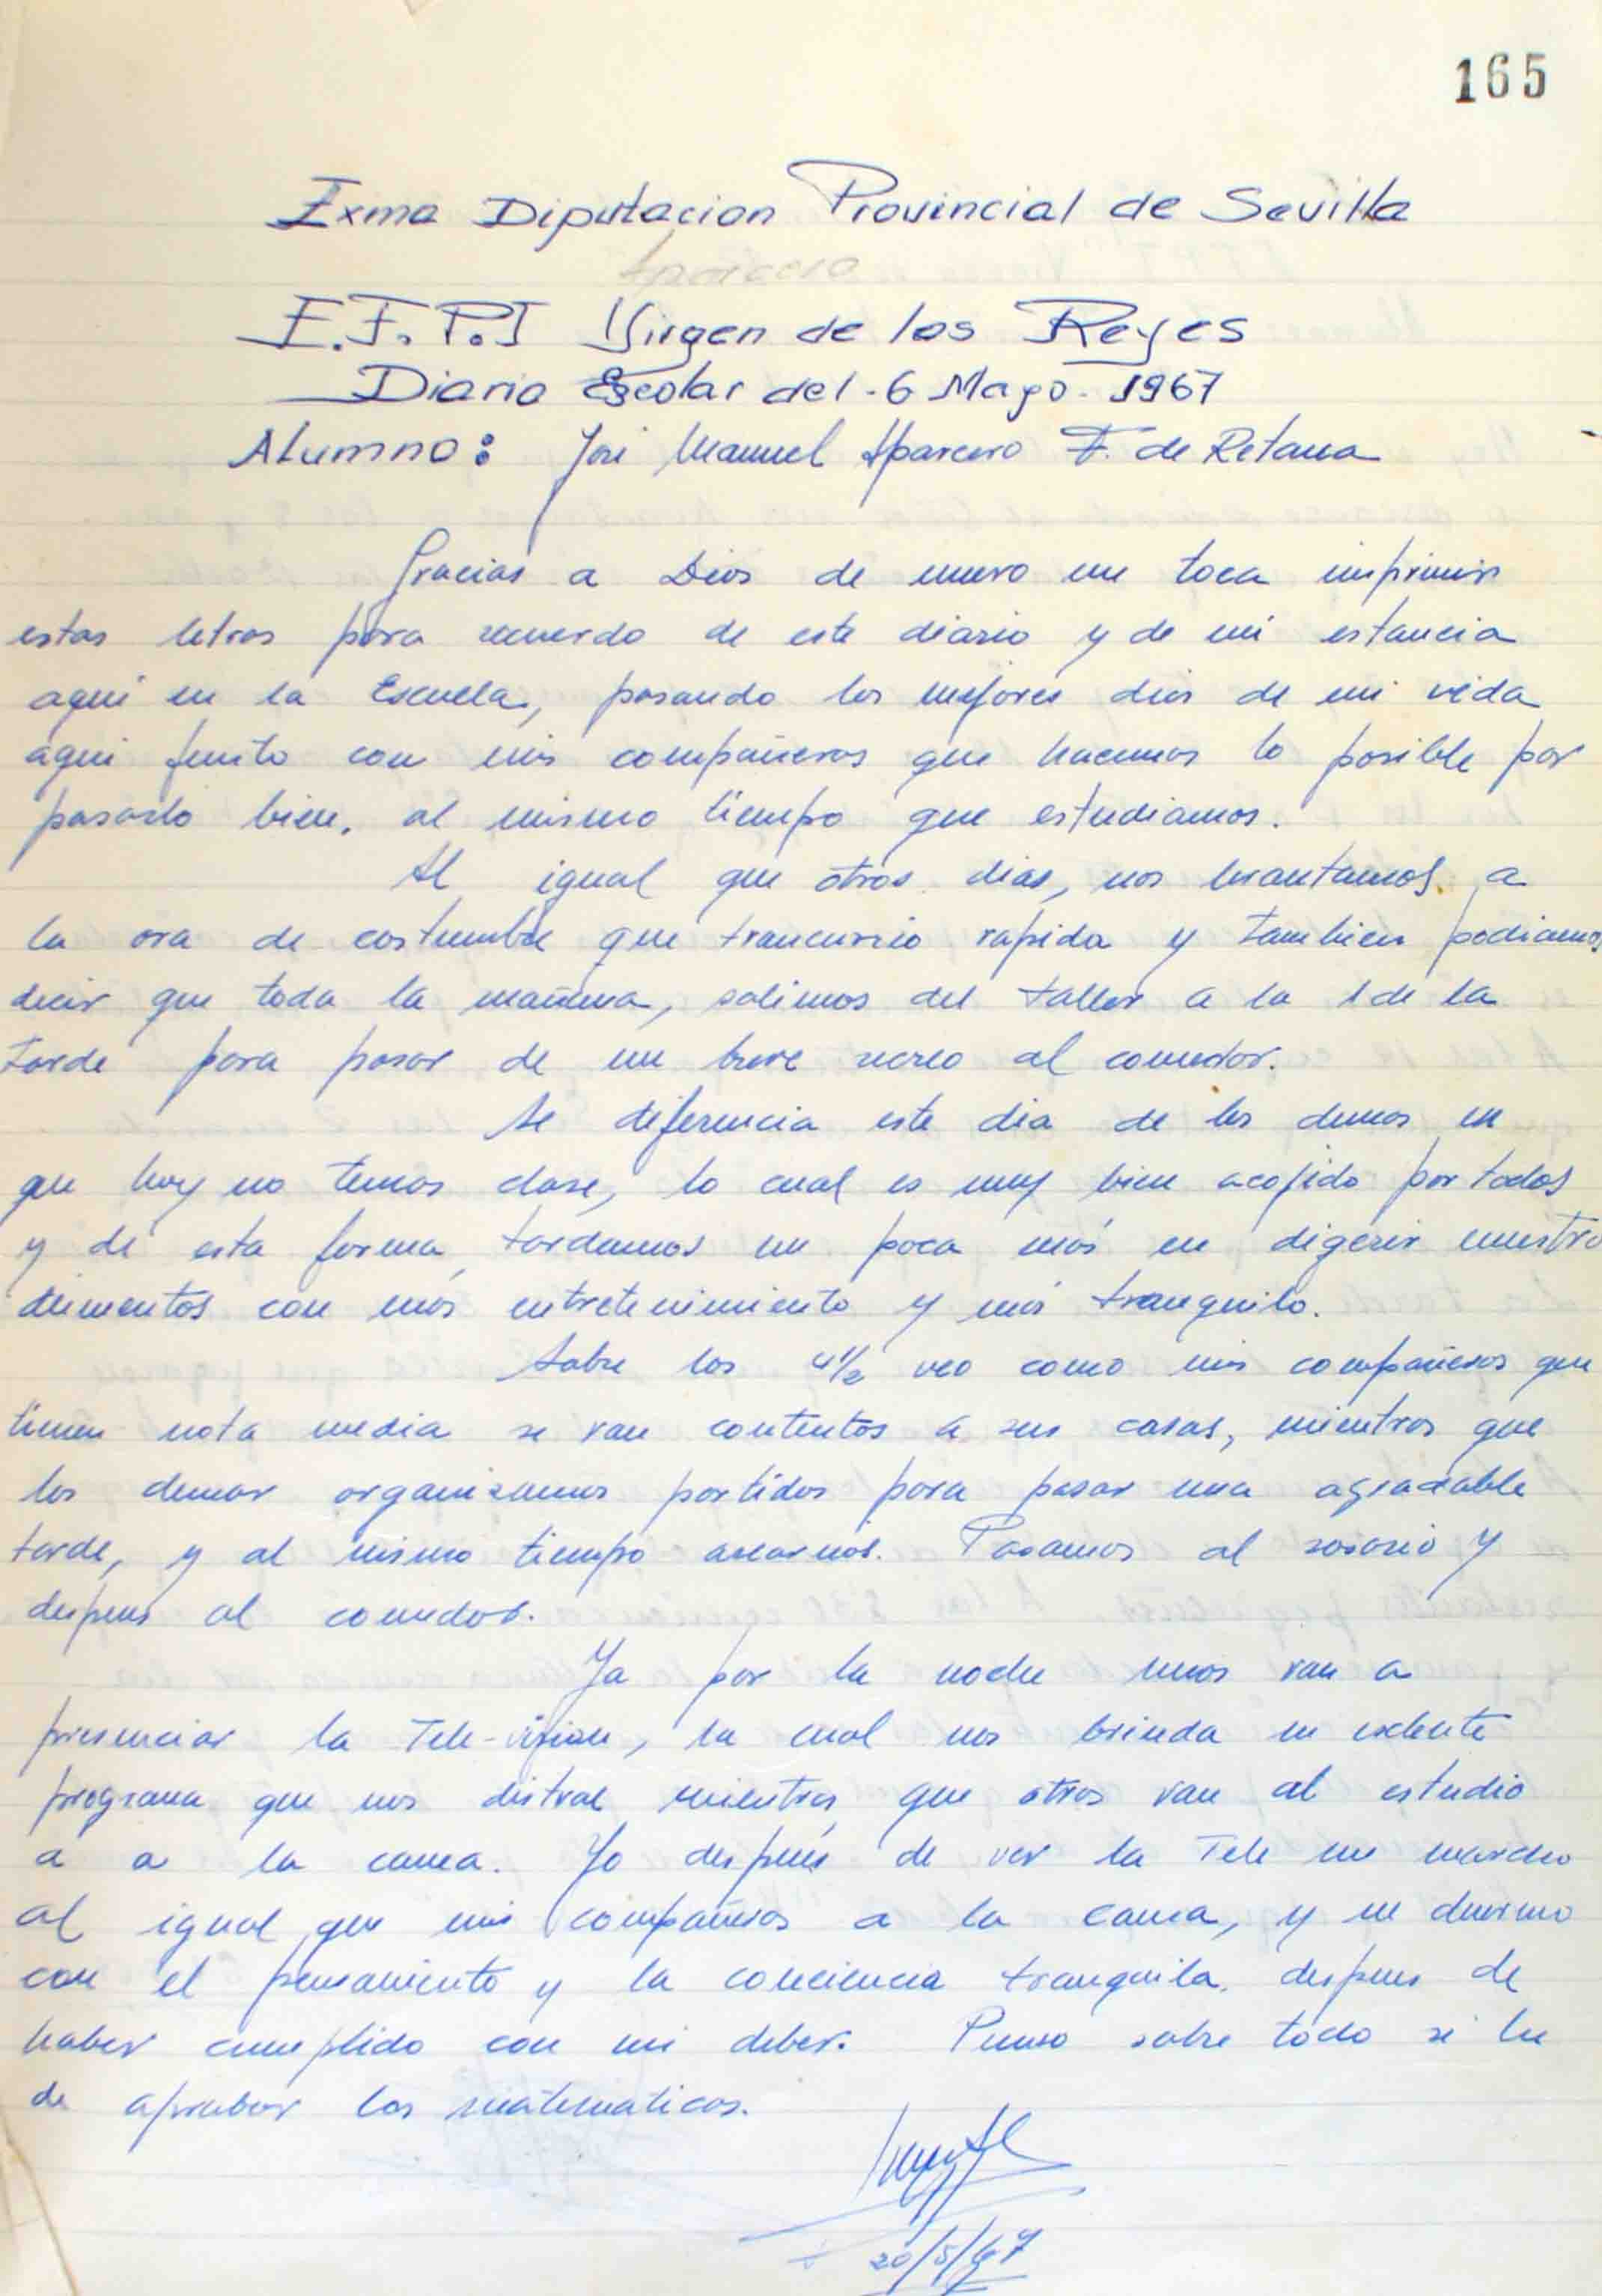 165
Exma Diputacion Provincial de Sevilla
Aparcero
E.F.P.I Virgen de los Reyes
Diario Escolar del - 6 Mayo - 1967
Alumno: José Manuel Aparcero F. de Retana
Gracias a Dios de nuevo me toca imprimir
estas letras para recuerdo de este diario y de mi estancia
aqui en la Escuela, pasando los mejores dias de mi vida
aqui junto con mis compañeros que hacemos lo posible por
pasarlo bien, al mismo tiempo que estudiamos.
Al igual que otros dias, nos levantamos a
la ora de costumbre que trancurrio rapida y tambien podiamos
decir que toda la mañana, salimos del taller a la 1 de la
tarde para pasar de un breve recreo al comedor.
Se diferencia este dia de los demas en
que hoy no temos clase, lo cual es muy bien acojido por todos
y de esta forma tardamos un poca más en digerir nuestro
alimentos con más entretenimiento y más tranquilo.
Sobre las 4½ veo como mis compañeros que
tienen nota media se van contentos a sus casas, mientras que
los demas organizamos partidos para pasar una agradable
tarde, y al mismo tiempo asearnos. Pasamos al rosario y
despues al comedor.
Ya por la noche unos van a
presenciar la Tele-vision, la cual nos brinda un exelente
programa que nos distrae mientras que otros van al estudio
a a la cama. Yo después de ver la Tele me marcho
al igual que mis compañeros a la cama, y me duermo
con el pensamiento y la conciencia tranquila, despues de
haber cumplido con mi deber. Pienso sobre todo si he
de aprobar las matematicas.
20/5/67